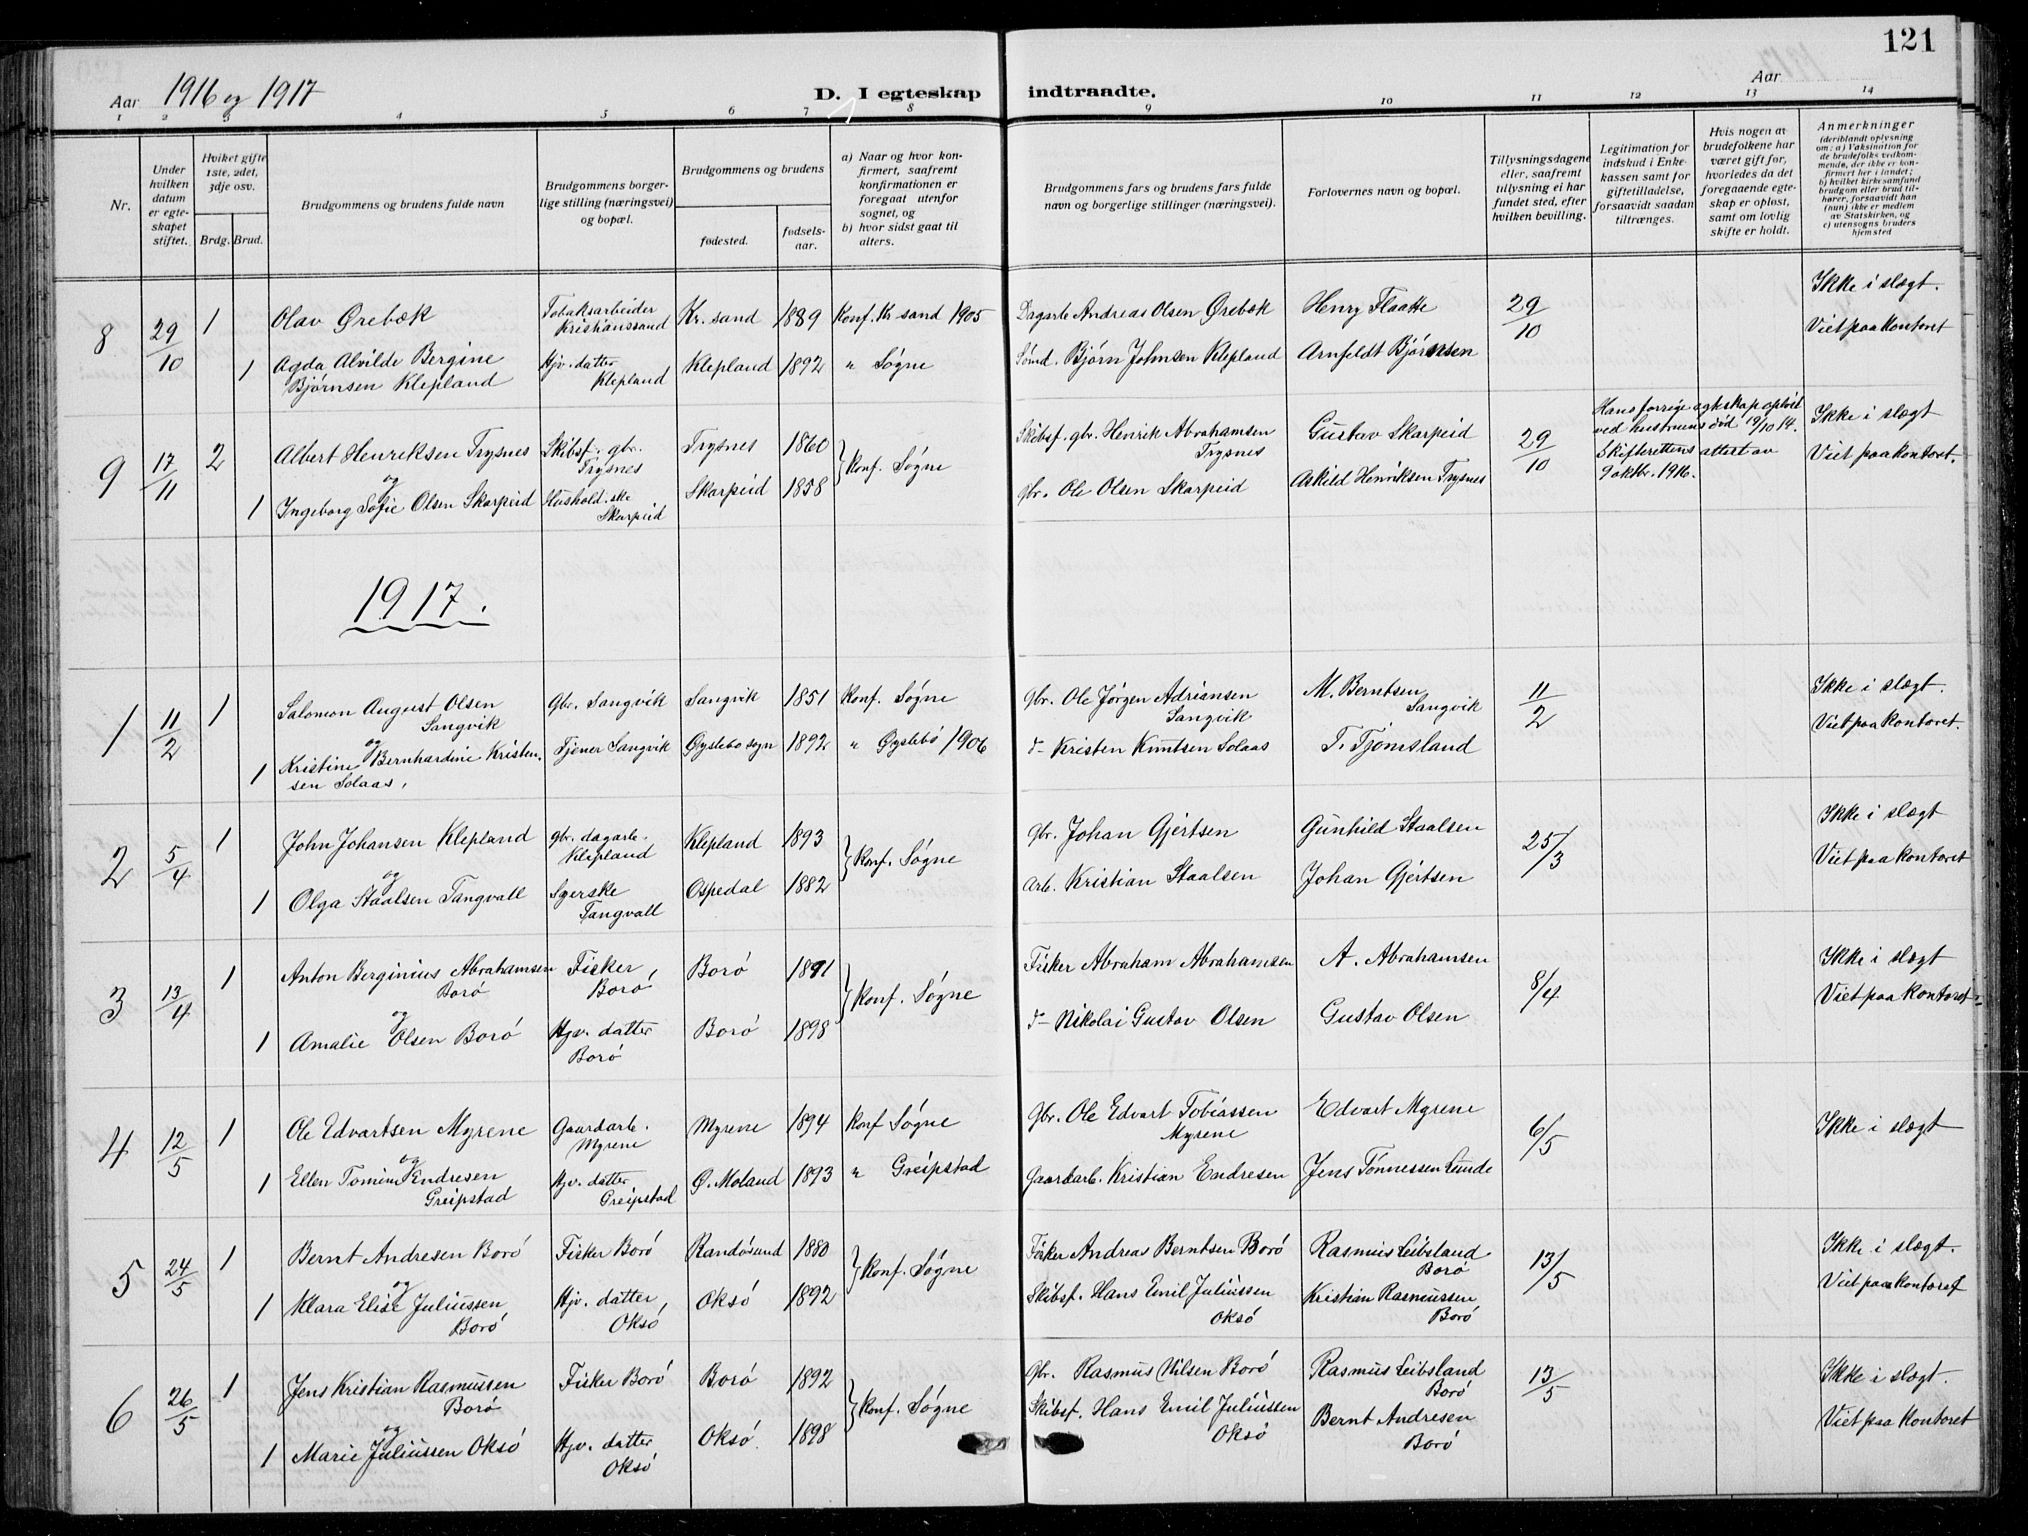 121
Aar 1916 og 1917
D. I egteskap indtraadte.
Aar
1 2 3 4 5 6 7 8 9 10 11 12 13 14
Nr.
Under hvilken datum er egteskapet stiftet.
Hvilket gifte 1ste, 2det, 3dje osv.
Brdg. Brud.
Brudgommens og brudens fulde navn
Brudgommens borgerlige stilling (næringsvei) og bopæl.
Brudgommens og brudens
fødested.
fødselsaar.
a) Naar og hvor konfirmert, saafremt konfirmationen er foregaat utenfor sognet, og
b) hvor sidst gaat til alters.
Brudgommens fars og brudens fars fulde navn og borgerlige stillinger (næringsvei).
Forlovernes navn og bopæl.
Tillysningsdagene eller, saafremt tillysning ei har fundet sted, efter hvilken bevilling.
Legitimation for indskud i Enkekassen samt for giftetilladelse, forsaavidt saadan tiltrænges.
Hvis nogen av brudefolkene har været gift før, hvorledes da det foregaaende egteskap er opløst, samt om lovlig skifte er holdt.
Anmerkninger
(deriblandt oplysning om: a) Vaksination for de brudefolks vedkommende, der ikke er konfirmert her i landet; b) hvilket kirkesamfund brudgom eller brud tilhører, forsaavidt han (hun) ikke er medlem av Statskirken, og c) utensogns bruders hjemsted
8 29/10 1 Olav Ørebæk Tobaksarbeider Kristianssand Kr. sand 1889 Konf. Kr sand 1905 Dagarb Andreas Olsen Ørebæk Henry Flaatte 29/10 Ikke i slægt.
1 Agda Alvilde Bergine Bjørnsen Klepland Hjv. datter Klepland Klepland 1892 " Søgne Sømd. Bjørn Johnsen Klepland Arnfeldt Bjørnsen Viet paa kontoret
9 17/11 2 Albert Henriksen Trysnes Skibsf. gbr. Trysnes Trysnes 1860 Konf. Søgne Skibsf. gbr. Henrik Abrahamsen Trysnes Gustav Skarpeid 29/10 Hans forrige egteskap opløst ved hustruens død 19/10 14. Skifterettens attest av 9 oktbr. 1916. Ikke i slægt
og
1 Ingeborg Sofie Olsen Skarpeid Hushold.ske Skarpeid Skarpeid 1858 gbr. Ole Olsen Skarpeid Askild Henriksen Trysnes Viet paa kontoret.
1917.
1 11/2 1 Salomon August Olsen Sangvik gbr. Sangvik Sangvik 1851 Konf. Søgne gbr. Ole Jørgen Adriansen Sangvik M. Berntsen Sangvik 11/2 Ikke i slægt.
og
1 Kristine Bernhardine Kristensen Solaas, Tjener Sangvik Øyslebo sogn 1892 " Øyslebø 1906 d- Kristen Knutsen Solaas T. Tjomsland Viet paa kontoret.
2 5/4 1 John Johansen Klepland gbr. dagarb. Klepland Klepland 1893 Konf. Søgne gbr. Johan Gjertsen Gunhild Staalsen 25/3 Ikke i slægt
og
1 Olga Staalsen Tangvall Syerske Tangvall Ospedal 1882 arb. Kristian Staalsen Johan Gjertsen Viet paa kontoret
3 13/4 1 Anton Berginius Abrahamsen Borø Fisker Borø Borø 1891 Konf. Søgne Fisker Abraham Abrahamsen A. Abrahamsen 8/4 Ikke i slægt
og
1 Amalie Olsen Borø Hjv. datter Borø Borø 1898 d- Nikolai Gustav Olsen Gustav Olsen Viet paa kontoret.
4 12/5 1 Ole Edvartsen Myrene Gaardarb. Myrene Myrene 1894 Konf Søgne Gbr. Ole Edvart Tobiassen Myrene Edvart Myrene 6/5 Ikke i slægt
og
1 Ellen Tomine Endresen Greipstad Hjv. datter Greipstad Ø. Moland 1893 " Greipstad Gaardarb. Kristian Endresen Jens Tønnessen Lunde
5 24/5 1 Bernt Andresen Borø Fisker Borø Randøsund 1880 Konf. Søgne Fisker Andreas Berntsen Borø Rasmus Leibsland Borø 13/5 Ikke i slægt.
og
1 Klara Elise Juliussen Borø Hjv. datter Oksø Oksø 1892 Skibsf. Hans Emil Juliussen Oksø Kristian Rasmussen Borø Viet paa kontoret
6 26/5 1 Jens Kristian Rasmussen Borø Fisker Borø Borø 1892 Konf. Søgne Gbr. Rasmus Nilsen Borø Rasmus Leibsland Borø 13/5 Ikke i slægt.
og
1 Marie Juliussen Oksø Hjv. datter Oksø Oksø. 1898 Skibsf. Hans Emil Juliussen Oksø Bernt Andresen Borø Viet paa kontoret